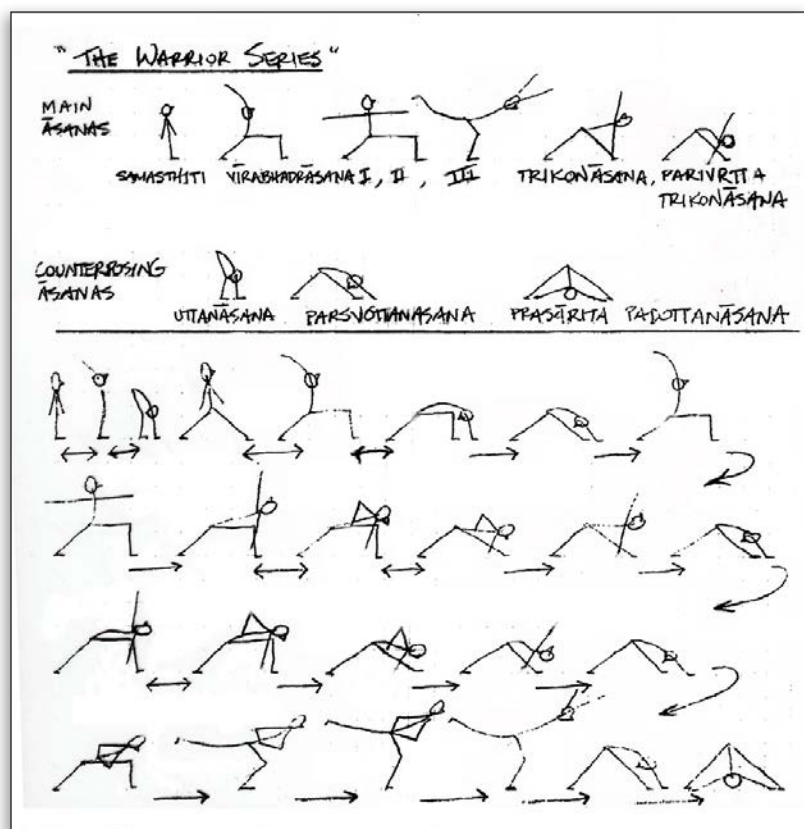 "THE WARRIOR SERIES"
MAIN
ĀSANAS
SAMASTHITI VĪRABHADRĀSANA I, II, III TRIKONĀSANA, PARIVRTTA
TRIKONĀSANA
COUNTERPOSING
ĀSANAS
UTTANĀSANA PARSVOTTANASANA PRASĀRITA PADOTTANĀSANA